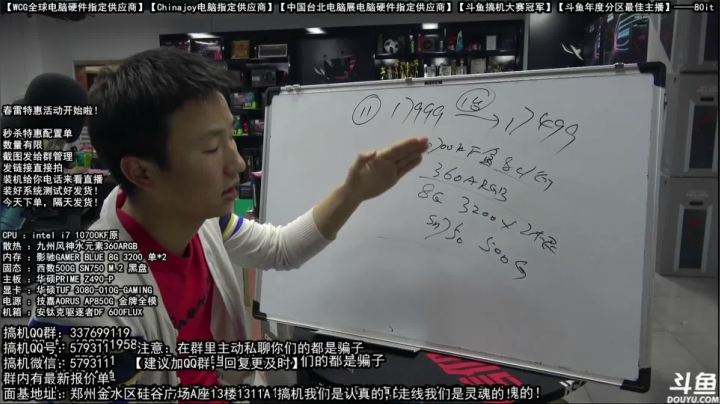 【WCG全球电脑硬件指定供应商】【Chinajoy电脑指定供应商】【中国台北电脑展电脑硬件指定供应商】【斗鱼搞机大赛冠军】【斗鱼年度分区最佳主播】——80it
春雷特惠活动开始啦！
秒杀特惠配置单
数量有限
截图发给群管理
发链接直接拍
装机给你电话来看直播
装好系统测试好发货！
今天下单，隔天发货！
CPU : intel i7 10700KF原
散热 : 九州风神水元素360ARGB
内存 : 影驰GAMER BLUE 8G 3200 单*2
固态 : 西数500G SN750 M.2 黑盘
主板 : 华硕PRIME Z490-P
显卡 : 华硕TUF 3080-O10G-GAMING
电源 : 技嘉AORUS AP850G 金牌全模
机箱 : 安钛克驱逐者DF 600FLUX
搞机QQ群: 337699119
搞机QQ号: 5793111958
注意: 在群里主动私聊你们的都是骗子
搞机微信: 5793111
【建议加QQ群，回复更及时】
们的都是骗子
群内有最新报价单
面基地址: 郑州金水区硅谷广场A座13楼1311A1
搞机我们是认真的，走线我们是灵魂的！
11 17999 → 17499
360ARGB
8G 3200 X 2
Sn750 500G
斗鱼
DOUYU.COM